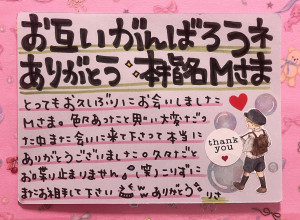 お互いがんばろうネ
ありがとう 本指名Mさま
とってもお久しぶりにお会いしました
Mさま。色々あったと思い大変だっ
た中また会いに来て下さって本当に
ありがとうございました。久々だと
お喋り止まりません。(笑)こりずに
またお相手して下さい ありがとう りさ
thank
you